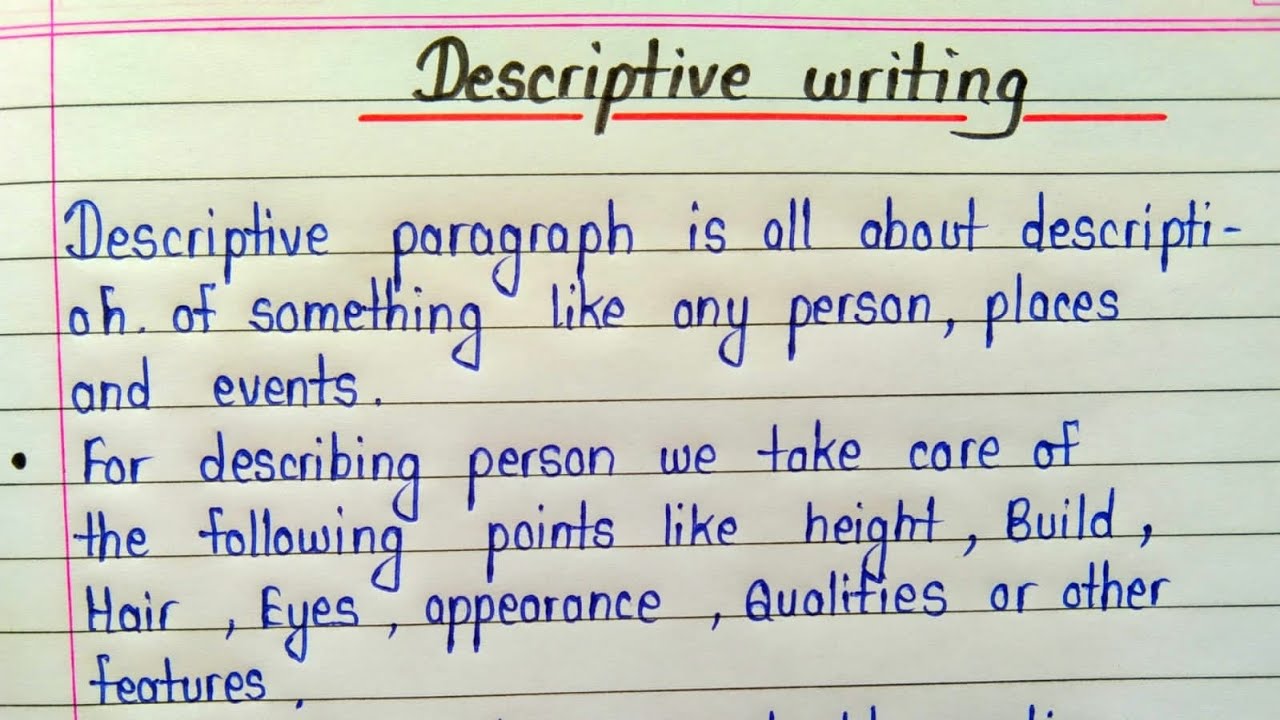 Descriptive writing
Descriptive paragraph is all about descripti-
on. of something like any person, places
and events.
• For describing person we take care of
the following points like height, Build,
Hair, Eyes, appearance, Qualities or other
features,